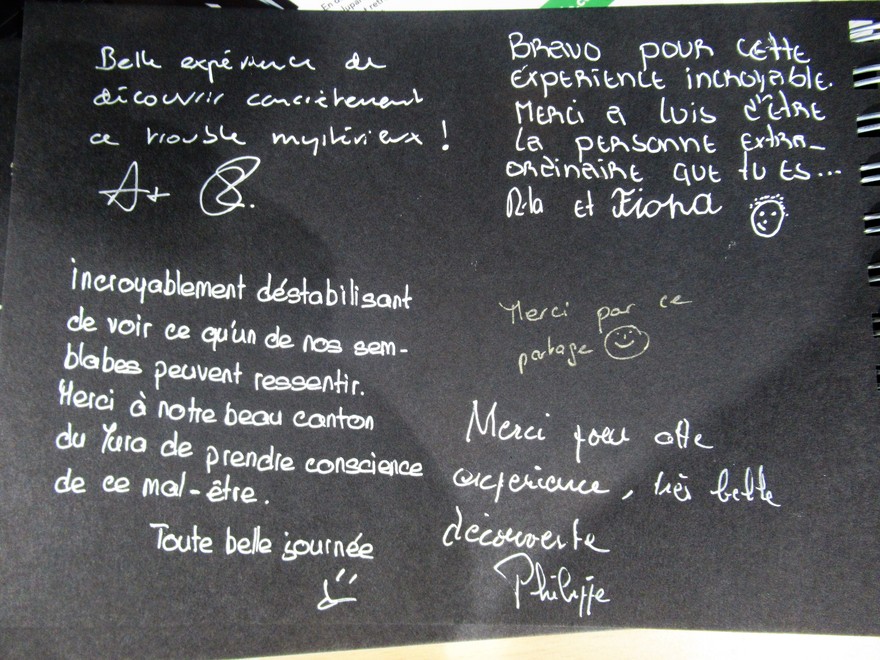 Belle expérience de
découvrir concrètement
ce trouble mystérieux !
A+
BRAVO POUR CETTE
EXPERIENCE INCROYABLE.
MERCI A LUIS D'ÊTRE
LA PERSONNE EXTRA-
ORDINAIRE QUE TU ES...
Rila ET Fiona
incroyablement déstabilisant
de voir ce qu'un de nos sem-
blabes peuvent ressentir.
Merci à notre beau canton
du Jura de prendre conscience
de ce mal-être.
Toute belle journée
Merci par ce
partage
Merci pour cette
expérience, très belle
découverte
Philippe